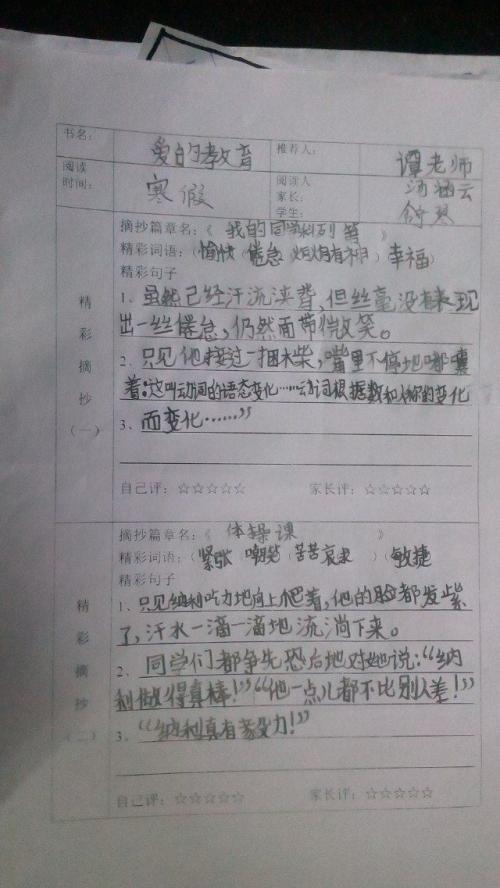 书名： 爱的教育 推荐人： 谭老师
阅读时间： 寒假 阅读人 家长： 汤涵云
学生：
摘抄篇章名：《 我的同学科列等 》
精彩词语：（愉快 倦怠 炯炯有神）幸福）
精彩句子
精彩摘抄（一）
1、虽然已经汗流浃背，但丝毫没有表现
出一丝倦怠，仍然面带微笑。
2、只见他接过一捆木柴，嘴里不停地嘟囔
着：这叫动词的语态变化……动词根据数和人称的变化
3、而变化……”
自己评：☆☆☆☆☆ 家长评：☆☆☆☆☆
摘抄篇章名：《 体操课 》
精彩词语：（紧张 嘲笑（苦苦哀求 ）（敏捷
精彩句子
精彩摘抄（二）
1、只见纳利吃力地向上爬着，他的脸都发紫
了，汗水一滴一滴地流淌下来。
2、同学们都争先恐后地对她说：“纳
利做得真棒！”“他一点儿都不比别人差！”
3、“纳利真有毅力！”
自己评：☆☆☆☆☆ 家长评：☆☆☆☆☆